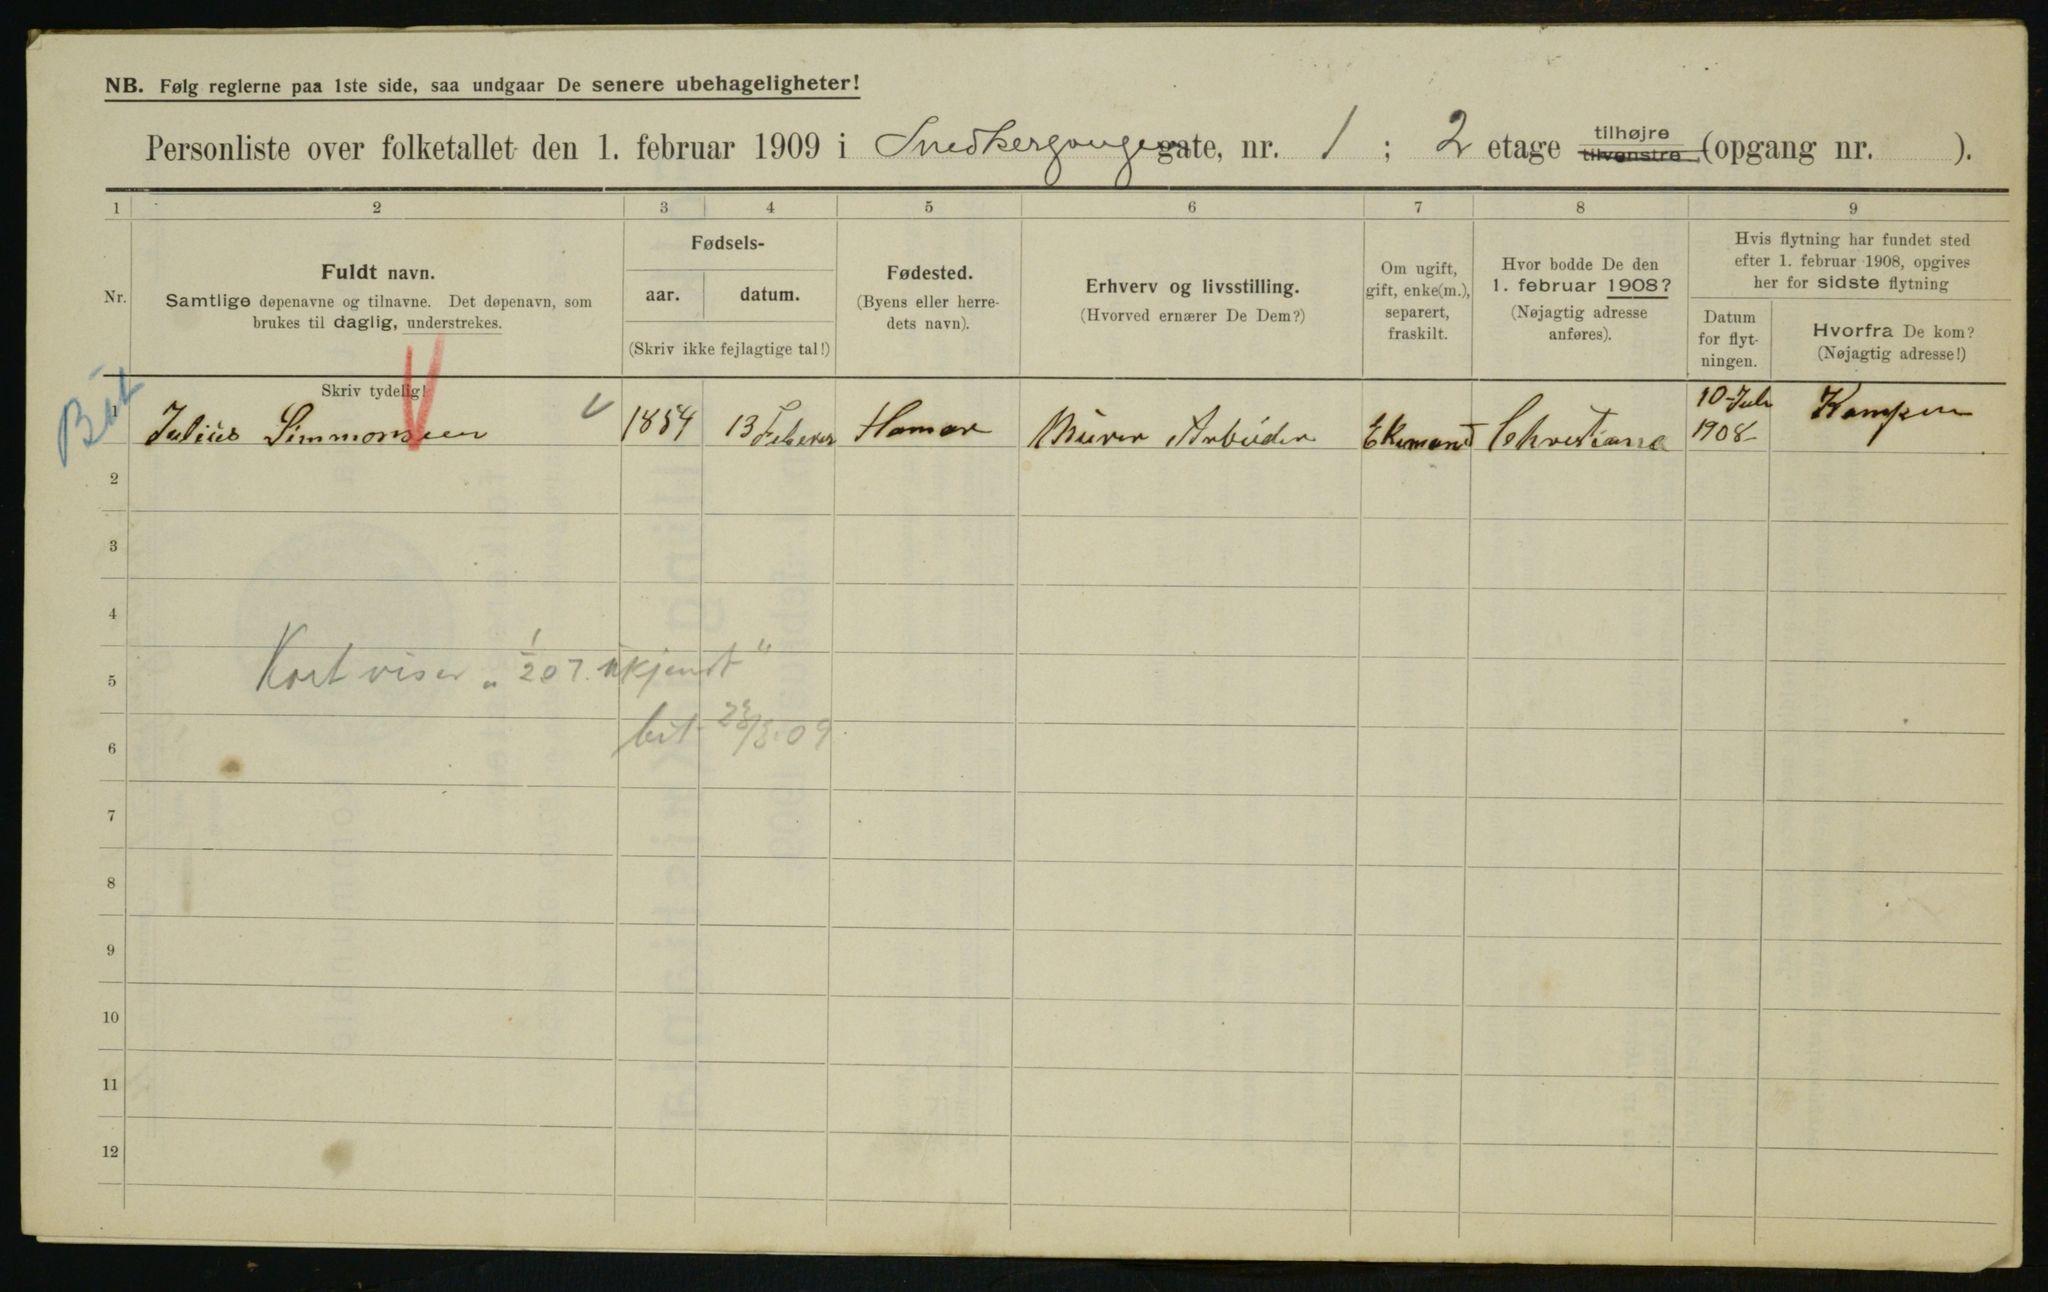 NB. Følg reglerne paa 1ste side, saa undgaar De senere ubehageligheter!
Personliste over folketallet den 1. februar 1909 i Snedkergangen gate, nr. 1 ; 2 etage tilhøjre tilvenstre (opgang nr. ).
1 2 3 4 5 6 7 8 9
Nr.
Fuldt navn.
Samtlige døpenavne og tilnavne. Det døpenavn, som
brukes til daglig, understrekes.
Skriv tydelig!
Fødsels-
aar. datum.
(Skriv ikke fejlagtige tal!)
Fødested.
(Byens eller herre-
dets navn).
Erhverv og livsstilling.
(Hvorved ernærer De Dem?)
Om ugift,
gift, enke(m.),
separert,
fraskilt.
Hvor bodde De den
1. februar 1908?
(Nøjagtig adresse
anføres).
Hvis flytning har fundet sted
efter 1. februar 1908, opgives
her for sidste flytning
Datum
for flyt-
ningen.
Hvorfra De kom?
(Nøjagtig adresse!)
1 Julius Simmonsen 1854 13 Februar Hamar Murer Arbeider Ekemand Christiana 10 Juli 1908 Kampen
2
3
4
Kort viser „ 1/207. ukjendt "
5
bit. 23/3.09
6
7
8
9
10
11
12